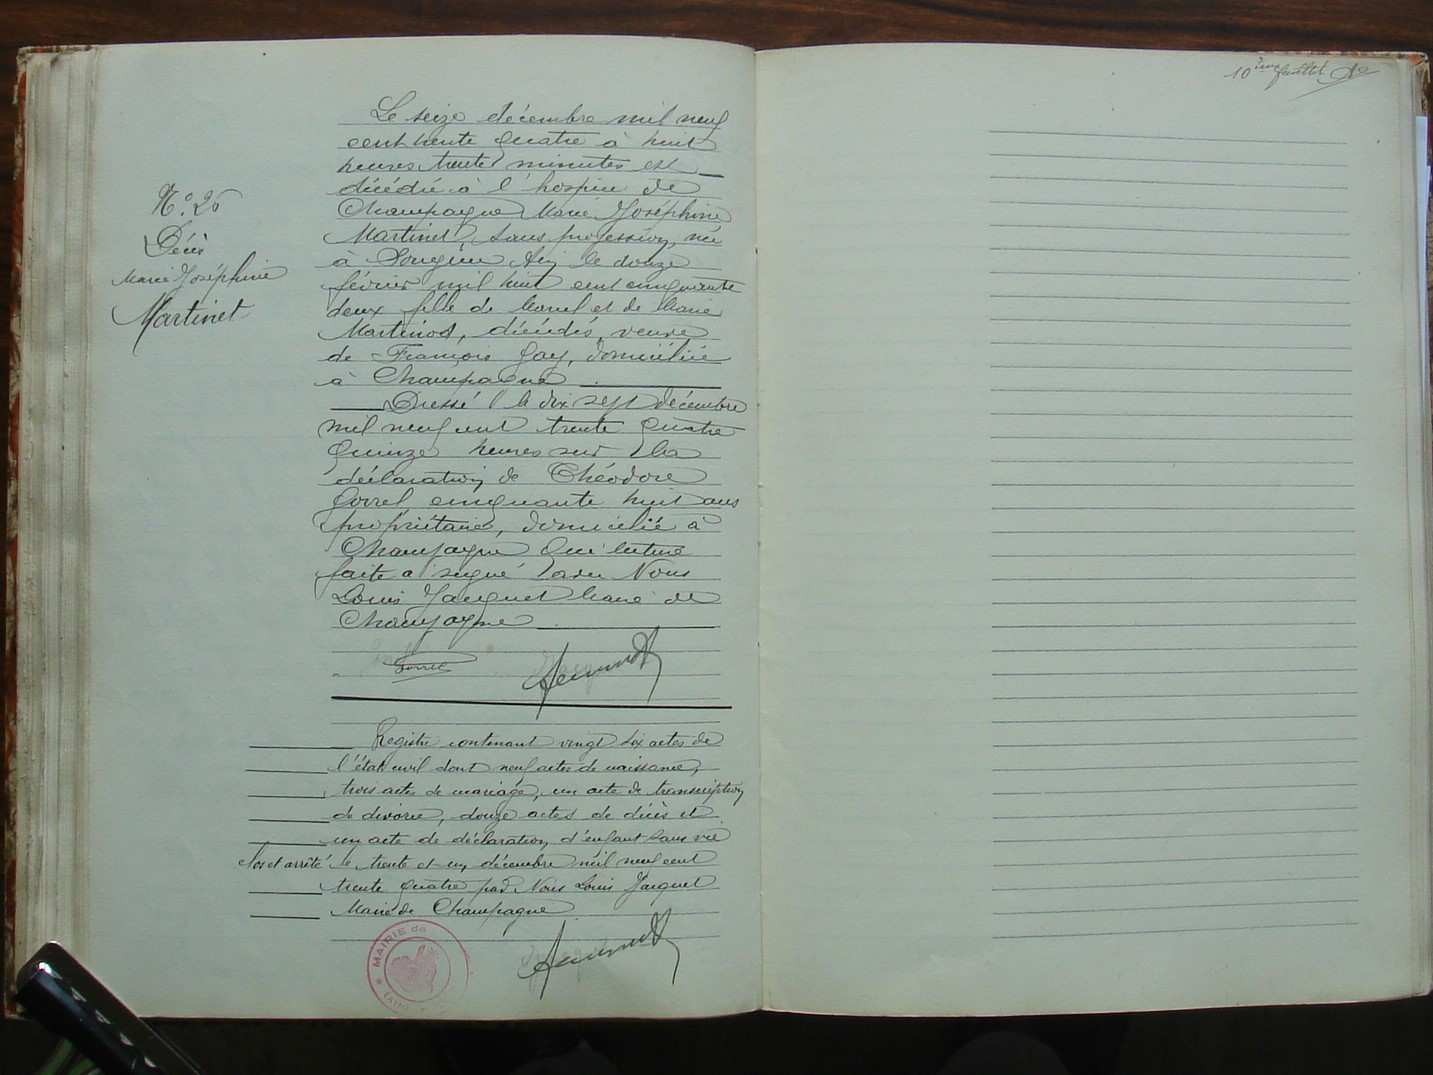 10ème feuillet
N° 26
Décès
Marie Joséphine
Martinet
Le seize décembre mil neuf
cent trente quatre à huit
heures trente minutes est
décédée à l'hospice de
Champagne Marie Joséphine
Martinet, sans profession, née
à Songieu Ain le douze
février mil huit cent cinquante
deux fille de et de Marie
Martinod, décédés, veuve
de François Gay, domiciliée
à Champagne
Dressé le dix sept décembre
mil neuf cent trente quatre
quinze heures sur la
déclaration de Théodore
Gorrel cinquante huit ans
propriétaire, domicilié à
Champagne qui lecture
faite a signé avec Nous
Louis Jacquet Maire de
Champagne
Gorrel
Registre contenant vingt six actes de
l'état civil dont neuf actes de naissance,
trois actes de mariage, un acte de transcription
de divorce, douze actes de décès et
un acte de déclaration d'enfant sans vie
clos et arrêté le trente et un décembre mil neuf cent
trente quatre par Nous Louis Jacquet
Maire de Champagne
MAIRIE de